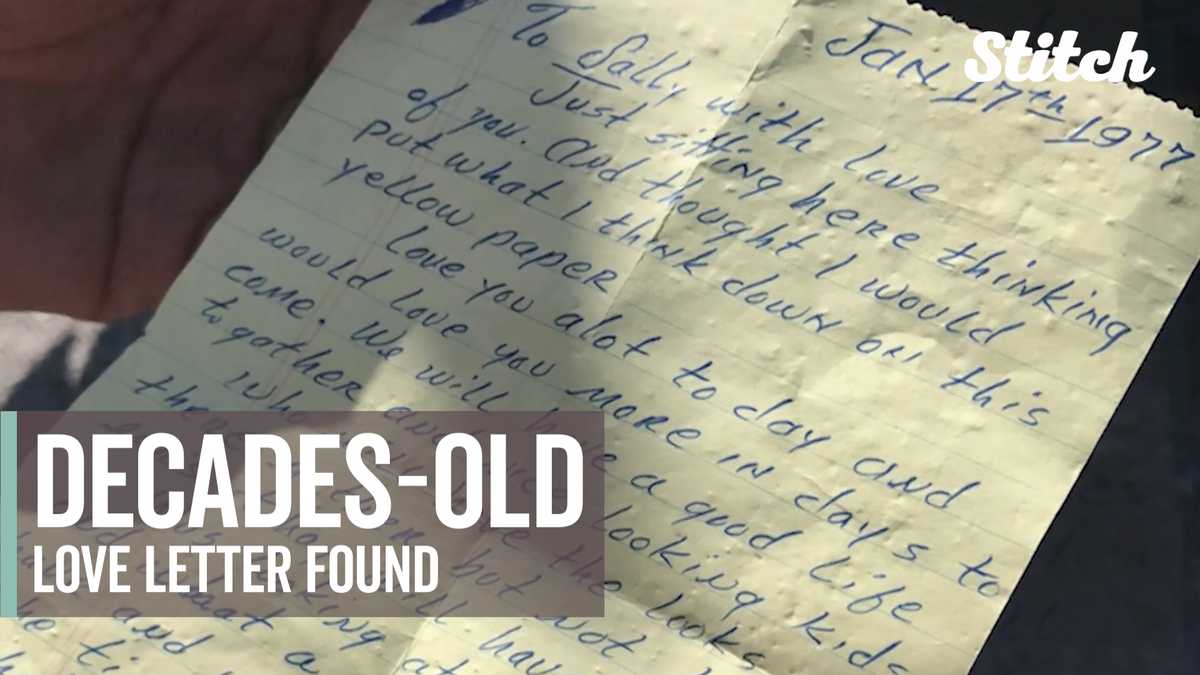 Stitch
JAN 17th 1977
To Sally with love
Just sitting here thinking
of you. and thought I would
put what I think down on this
yellow paper
Love you alot today and
would love you more in days to
come. We will have a good life
togather and looking kids
who the looks
not
will have
and a
DECADES-OLD
LOVE LETTER FOUND